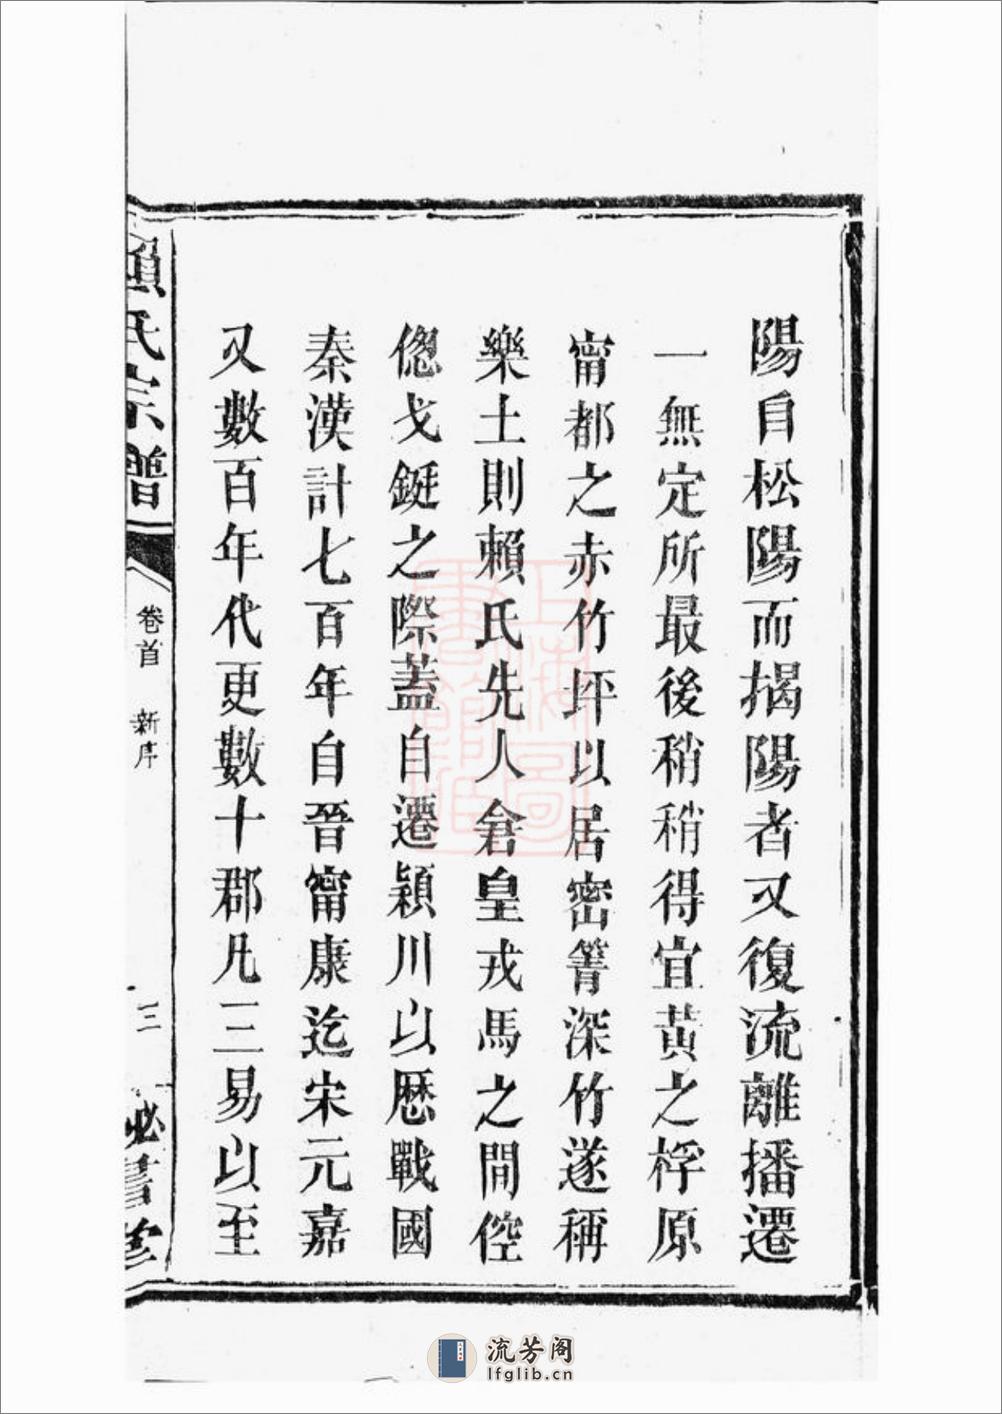 陽自松陽而揭陽者又復流離播遷
一無定所最後稍稍得宜黃之桴原
甯都之赤竹坪以居密箐深竹遂稱
樂土則賴氏先人倉皇戎馬之間倥
偬戈鋋之際蓋自遷潁川以歷戰國
秦漢計七百年自晉甯康迄宋元嘉
又數百年代更數十郡凡三易以至
賴氏宗譜
卷首 新序
三
秘書堂
上海圖書館藏
流芳阁
lfglib.cn